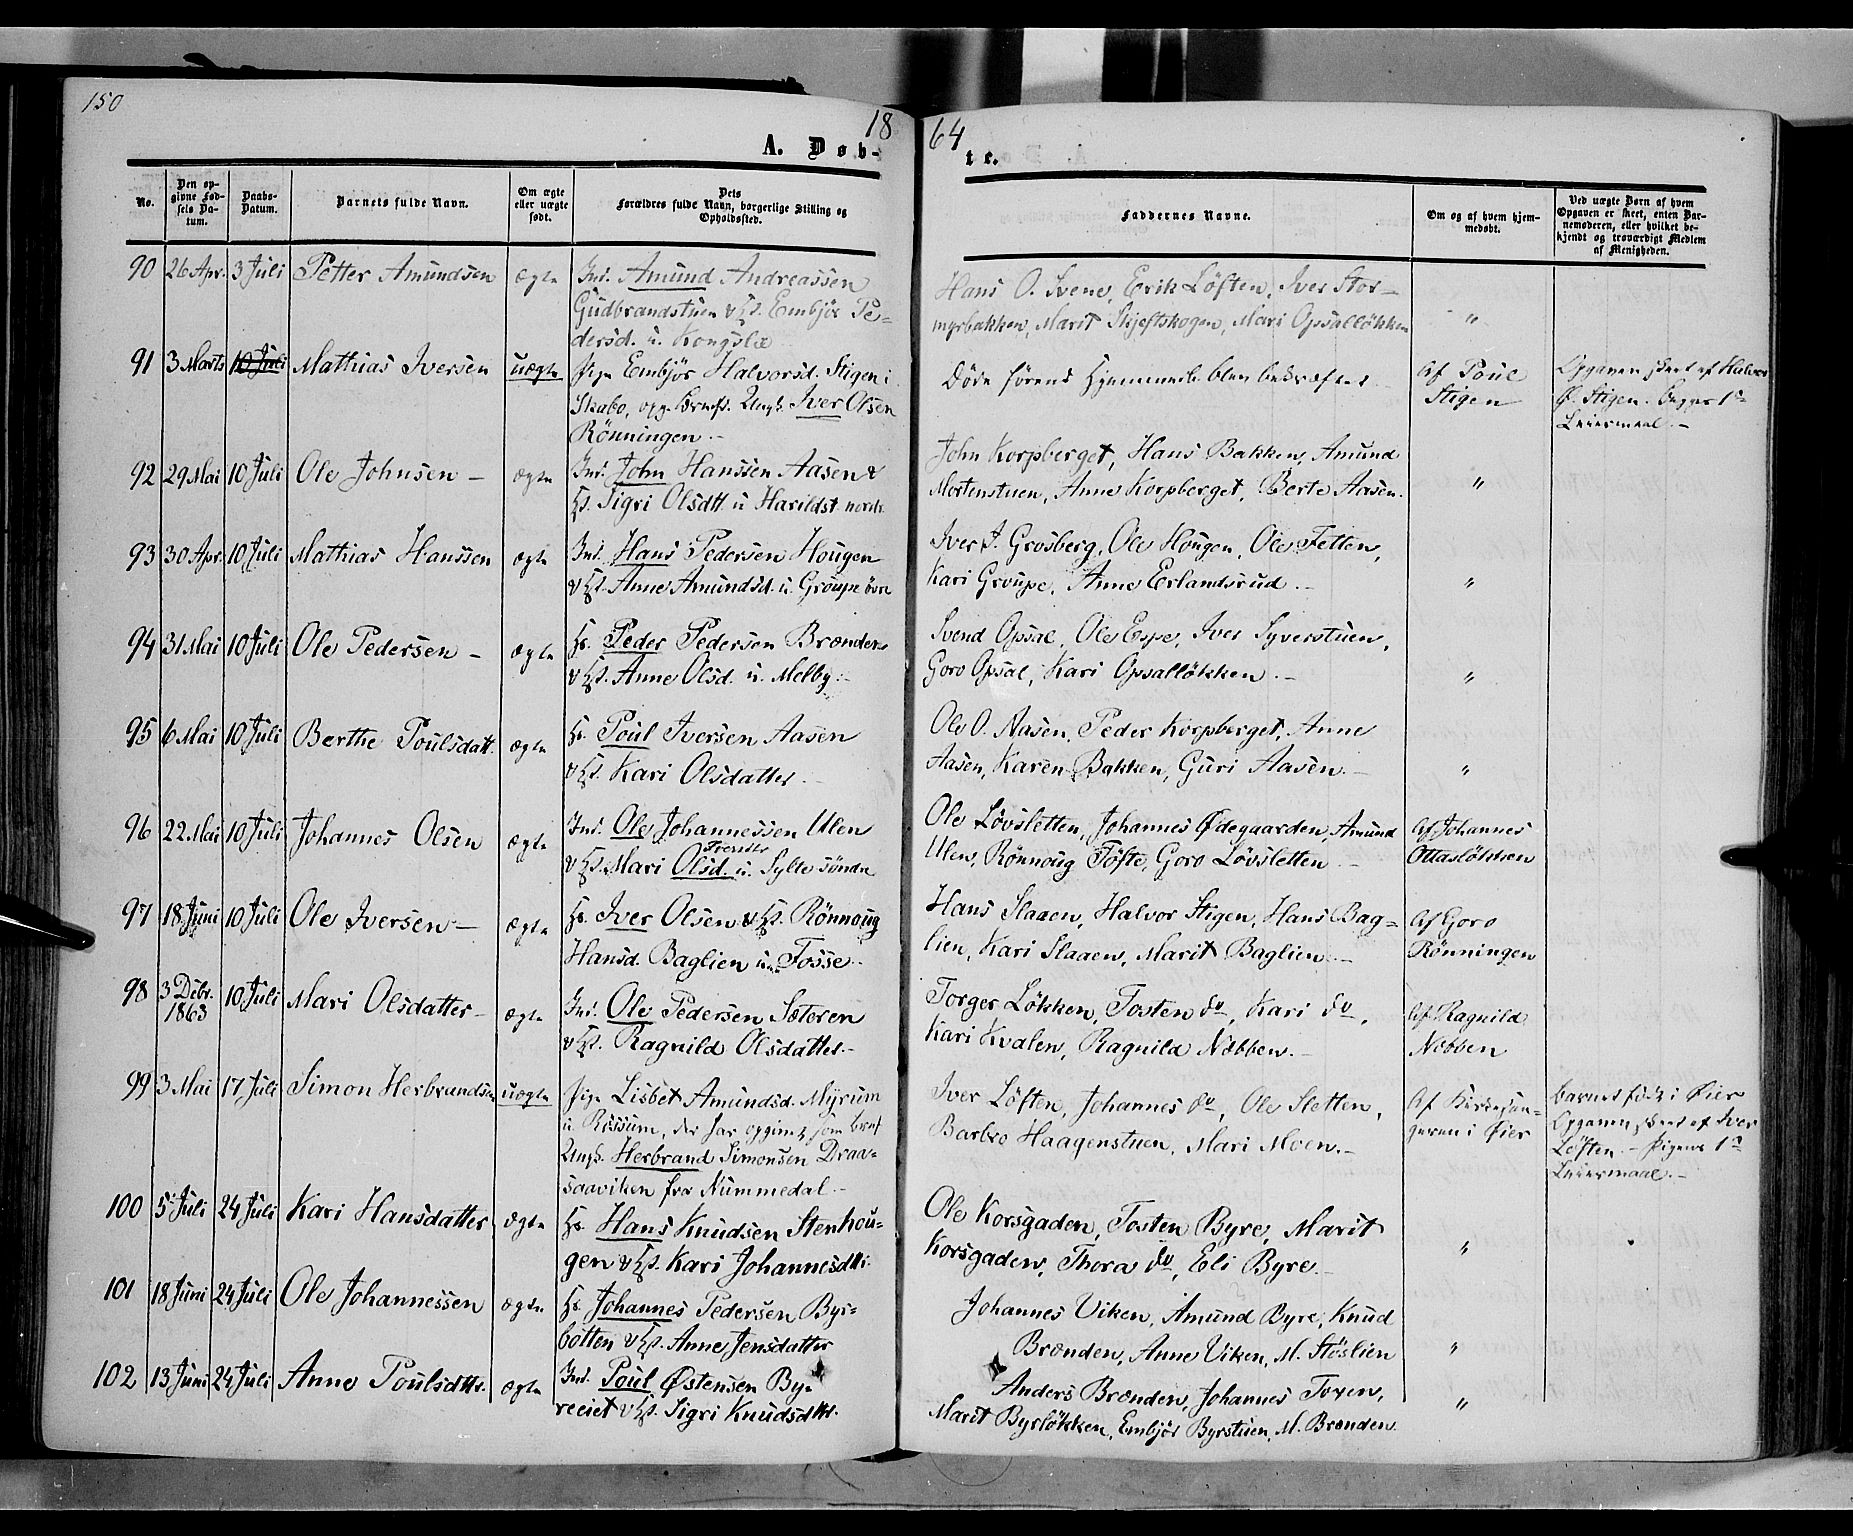 150
1864
A. Døbte.
No.
Den opgivne Fødsels Datum.
Daabs-Datum.
Barnets fulde Navn.
Om ægte eller uægte født.
Dets Forældres fulde Navn, borgerlige Stilling og Opholdssted.
Faddernes Navne.
Om og af hvem hjemmedøbt.
Ved uægte Børn af hvem Opgaven er skeet, enten Barnemoderen, eller hvilket bekjendt og troværdigt Medlem af Menigheden.
90 26 Apr. 3 Juli Petter Amundsen ægte Ind. Amund Andreassen
Gudbrandstuen & Hst. Embjør Pe-
dersd. u. Kongslie
Hans O. Svene, Erik Løften, Iver Stor-
myrbakken, Marit Skjeftskogen, Mari Opsalløkken "
91 3 Marts 10 Juli Mathias Iversen uægte Pige Embjør Halvorsd. Stigen i
Skabo, opg. Barnef. Ungk. Iver Olsen
Rönningen
Døde førend Hjemmedb. blev bekræftet
Af Poul
Stigen
Opgaven skeet af Halvor
Ø. Stigen. Begges 1ste
Leiermaal.
92 29 Mai 10 Juli Ole Johnsen - ægte Ind. John Hanssen Aasen &
Hst. Sigri Olsdtt. u Harildst. nordr.
John Korpberget, Hans Bakken, Amund
Mortenstuen, Anne Korpberget, Berte Aasen. "
93 30 Apr. 10 Juli Mathias Hanssen ægte Ind. Hans Pedersen Hougen
& Hst. Anne Amundsd. u. Groupe øvre
Iver I. Grosberg, Ole Hougen, Ole Fetten,
Kari Groupe, Anne Erlandsrud. "
94 31 Mai 10 Juli Ole Pedersen - ægte Hs. Peder Pedersen Brænden
& Hst. Anne Olsd. u. Melby.
Svend Opsal, Ole Espe, Iver Syverstuen,
Goro Opsal, Kari Opsalløkken. "
95 6 Mai 10 Juli Berthe Poulsdatt. ægte Hs. Poul Iversen Aasen
& Hst. Kari Olsdatter
Ole O. Aasen, Peder Korpberget, Anne
Aasen, Karen Bakken, Guri Aasen. "
96 22 Mai 10 Juli Johannes Olsen ægte Ind. Ole Johannessen Ulen
& Hst. Mari Olsd. u. Sylte söndre
Ole Løvsletten, Johannes Ødegaarden, Amund
Ulen, Rönnoug Tøfte, Goro Løvsletten
Af Johannes
Ottasløkken
97 18 Juni 10 Juli Ole Iversen - ægte Hs. Iver Olsen & Hst. Rönnoug
Hansd. Baglien u. Fosse.
Hans Slaaen, Halvor Stigen, Hans Bag-
lien, Kari Slaaen, Marit Baglien.
Af Goro
Rönningen
98 3 Debr. 1863 10 Juli Mari Olsdatter - ægte Ind. Ole Pedersen Sæteren
& Hst. Ragnild Olsdatter.
Torger Løkken, Tosten do, Kari do,
Kari Kvalen, Ragnild Nebben.
Af Ragnild
Nebben
99 3 Mai 17 Juli Simon Herbrandsen uægte Pige Lisbet Amundsd. Myrum
u Rossum, der har opgivet som Brnf.
Ungk. Herbrand Simonsen Draa-
saaviken fra Nummedal.
Iver Løften, Johannes do, Ole Sletten,
Barbro Haagenstuen, Mari Moen.
Af Kirkesan-
geren i Øier
Barnet født i Øier
Opgaven skeet af Iver
Løften. - Pigens 1ste
Leiermaal.
100 5 Juli 24 Juli Kari Hansdatter ægte Hs. Hans Knudsen Stenhou-
gen & Hst. Kari Johannesdtt.
Ole Korsgaden, Tosten Byre, Marit
Korsgaden, Thora do, Eli Byre. "
101 18 Juni 24 Juli Ole Johannessen ægte Hs. Johannes Pedersen Byr-
botten & Hst. Anne Jensdatter
Johannes Viken, Amund Byre, Knud
Brænden, Anne Viken, M. Støslien "
102 13 Juni 24 Juli Anne Poulsdtt. ægte Ind. Poul Østensen By-
reeiet & Hst. Sigri Knudsdtt.
Anders Brænden, Johannes Toxen,
Marit Byrløkken, Embjør Byrstuen, M. Brænden. "